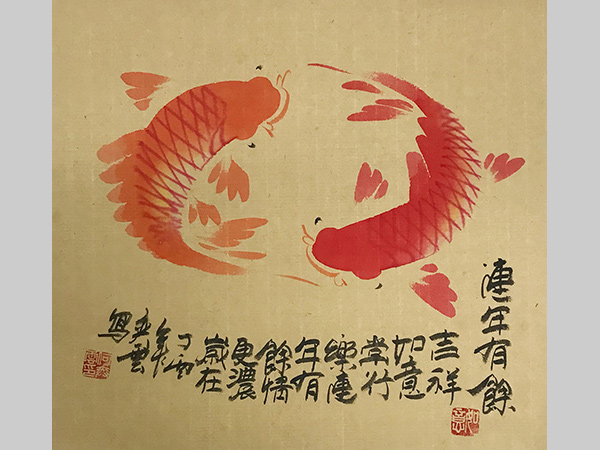 連年有餘
吉祥
如意
常行
樂連
年有
餘情
更濃
歲在
丁酉
雲
寫